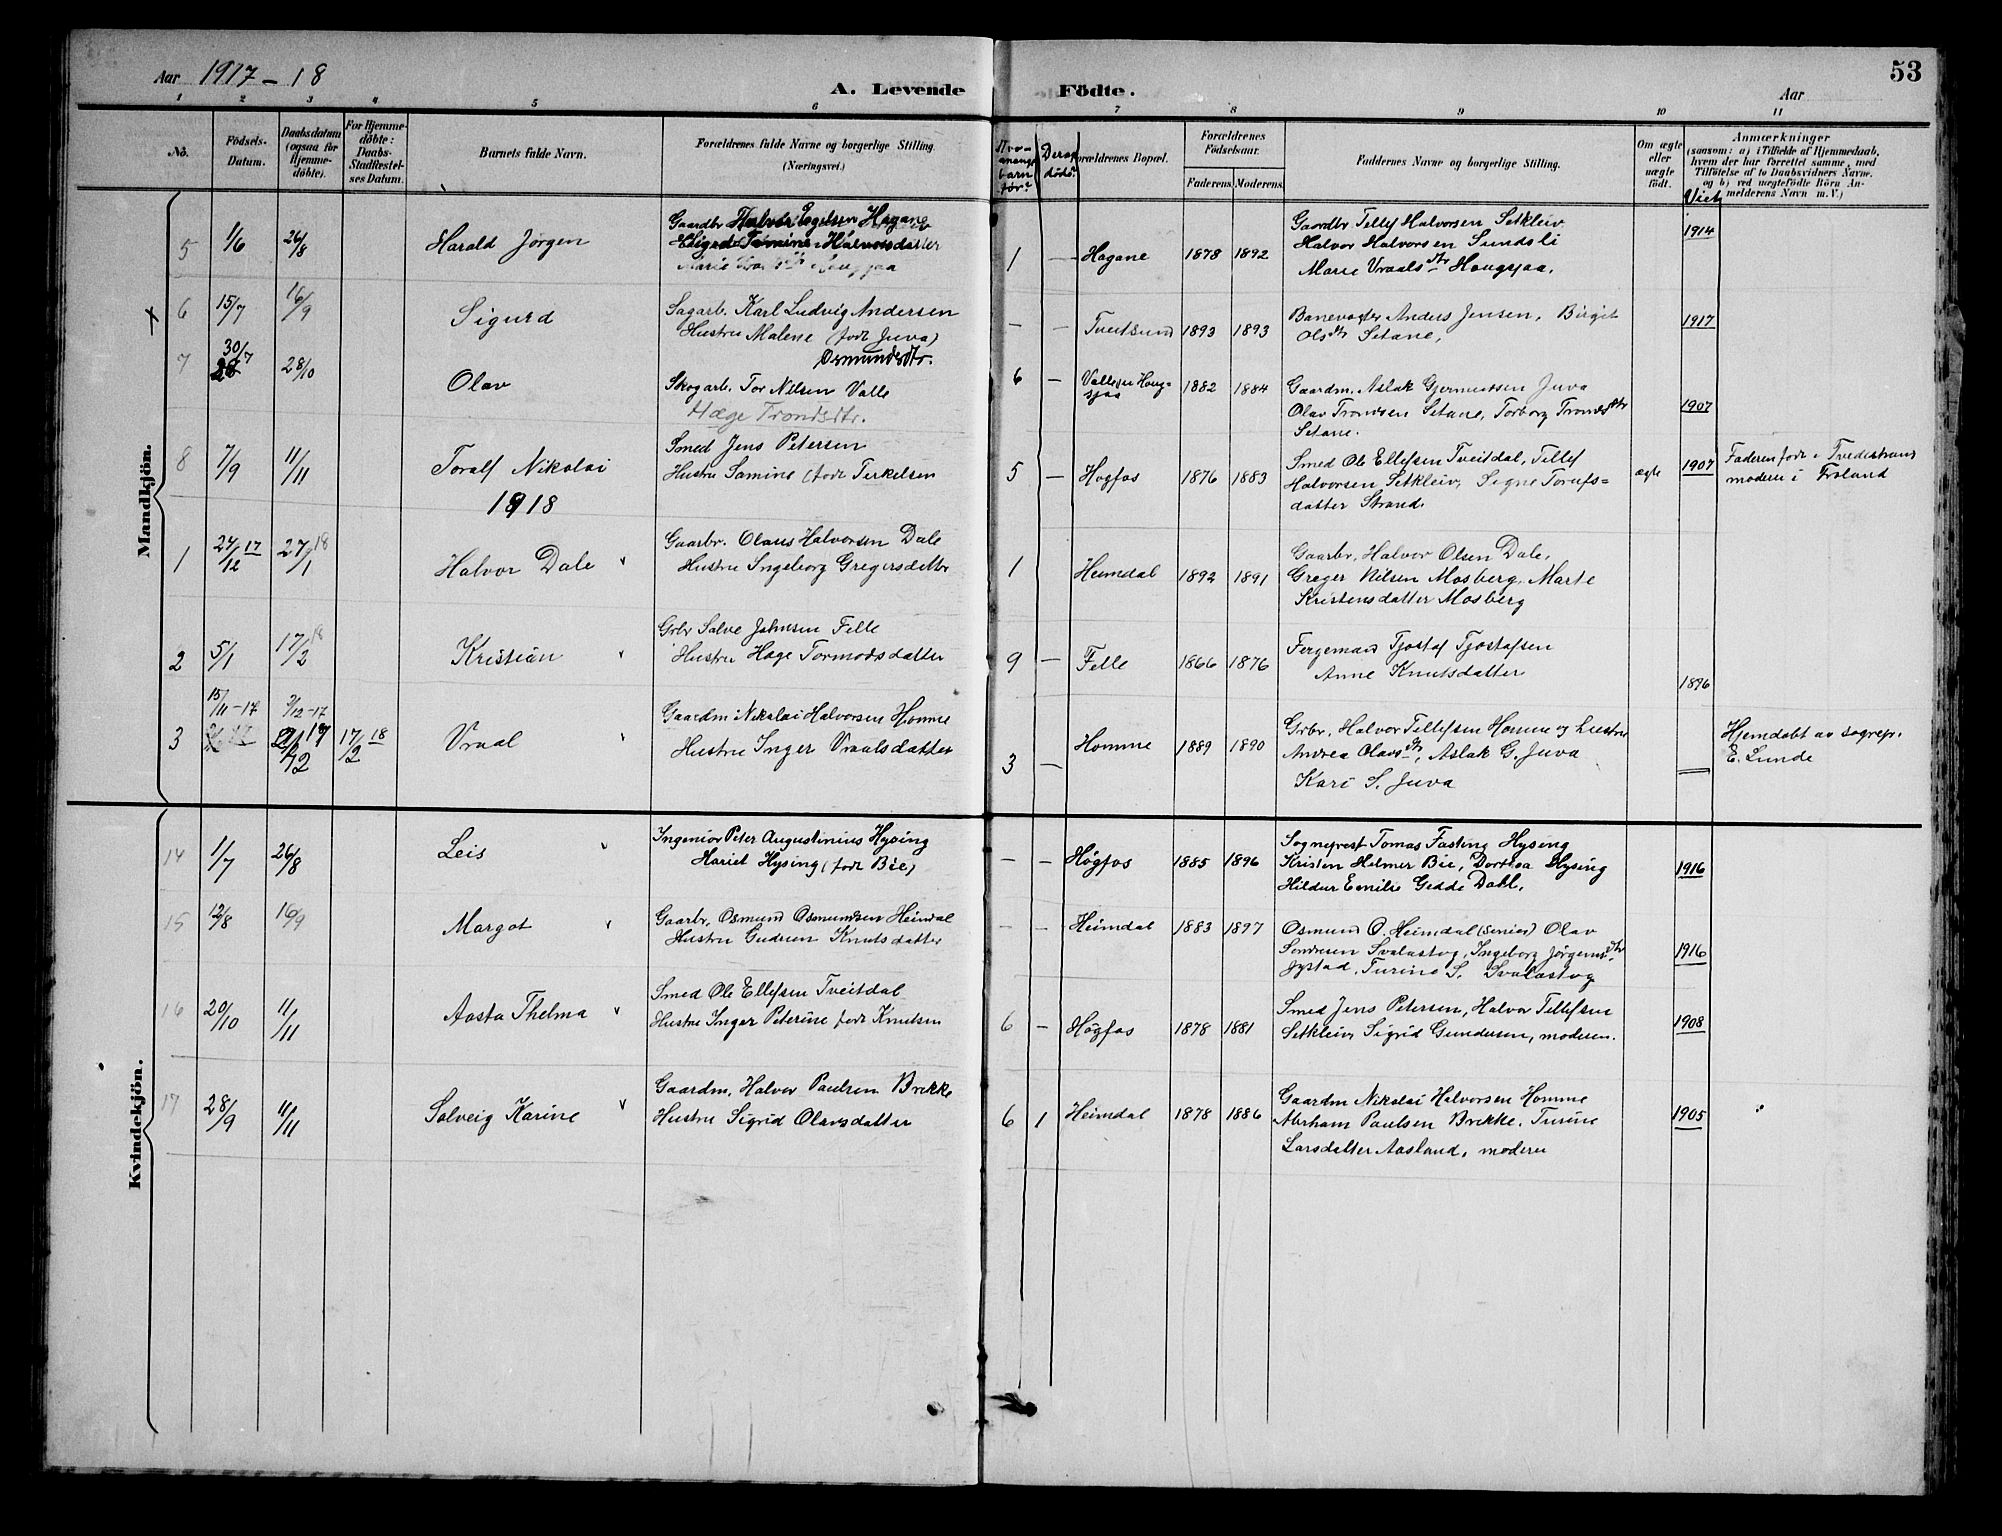 53
Aar 1917-18
A. Levende Födte.
Aar
1 2 3 4 5 6 7 8 9 10 11
No.
Födsels-Datum.
Daabsdatum (ogsaa for Hjemmedöbte).
For Hjemmedöbte: Daabs-Stadfestelses Datum.
Barnets fulde Navn.
Forældrenes fulde Navne og borgerlige Stilling.
(Næringsvei.)
Forældrenes Bopæl.
Forældrenes Födselsaar.
Faderens. Moderens.
Faddernes Navne og borgerlige Stilling.
Om ægte eller uægte födt.
Anmærkninger
(saasom: a) i Tilfælde af Hjemmedaab, hvem der har forrettet samme, med Tilföielse af to Daabsvidners Navne. og b) ved uægtefödte Börn Anmelderens Navn m. V.)
Viet
Mandkjön.
5 1/6 26/8 Harald Jørgen
Gaardbr Halvor Engelsen Hagane
1 — Hagane 1878 1892
Gaardbr Tellef Halvorsen Setkleiv
Halvor Halvorsen Sundsli
Marie Vraalsdtr Haugsjaa.
1914
6 15/7 16/9 Sigurd
Sagarb. Karl Ludvig Andersen
Hustru Malene (født Juva)
Osmundsdtr.
— — Tveitsund 1893 1893
Banevogter Anders Jensen, Birgit
Olsdtr Setane,
1917
7 30/7 28/10 Olav
Skogarb. Tor Nilsen Valle
Hæge Trondsdtr.
6 — Valle Haugsjaa 1882 1884
Gaardm. Aslak Gjermundsen Juva
Olav Trondsen Setane, Torborg Trondsdtr
Setane.
1907
8 7/9 11/11 Toralf Nikolai
Smed Jens Petersen
Hustru Samine (født Terkelsen
5 — Høgfos 1876 1883
Smed Ole Ellefsen Tveitdal, Tellef
Halvorsen Setkleiv, Signe Torufs=
datter Strand.
ægte 1907
Faderen født i Tvedestrand
moderen i Froland
1918
1 24/12 17 27/1 18 Halvor Dale
Gaarbr. Olaus Halvorsen Dale
Hustru Ingeborg Gregersdatter
1 Heimdal 1892 1891
Gaarbr. Halvor Olsen Dale,
Greger Nilsen Mosberg, Marte
Kristensdatter Mosberg
2 5/1 17/2 18 Kristian
Grbr Salve Johnsen Felle
Hustru Hæge Tormodsdatter
9 — Felle 1866 1876
Fergemand Tjostof Tjostofsen
Anne Knutsdatter
1896
3 15/11-17 2/12-17 17/2 18 Vraal
Gaardm Nikolai Halvorsen Homme
Hustru Inger Vraalsdatter
3 — Homme 1889 1890
Grbr. Halvor Tellefsen Homme og hustru
Andrea Olavsdtr, Aslak G. Juva
Kari S. Juva
Hjemdøbt av sogrepr.
E. Lunde
Kvindekjön.
14 1/7 26/8 Leis
Ingeniør Peter Augustinius Hysing
Hariet Hysing (født Bie)
— — Høgfos 1885 1896
Sogneprest Tomas Fasting Hysing
Kristen Helmer Bie, Dorthea Hysing
Hildur Emilie Gedde Dahl.
1916
15 12/8 16/9 Margot
Gaarbr. Osmund Osmundsen Heimdal
Hustru Gudrun Knutsdatter
— — Heimdal 1883 1897
Osmund O. Heimdal (senior) Olav
Sondresen Svalastog, Ingeborg Jørgensdtr
Jystad, Turine S. Svalastog
1916
16 20/10 11/11 Aasta Thelma
Smed Ole Ellefsen Tveitdal
Hustru Inger Peterine født Knutsen
6 — Høgfos 1878 1881
Smed Jens Petersen, Halvor Tellefsen
Setkleiv, Sigrid Gundersen, moderen.
1908
17 28/9 11/11 Solveig Karine
Gaardm. Halvor Paulsen Brekke
Hustru Sigrid Olavsdatter
6 1 Heimdal 1878 1886
Gaardm Nikolai Halvorsen Homme
Abrham Paulsen Brekke, Turine
Larsdatter Aasland, moderen
1905